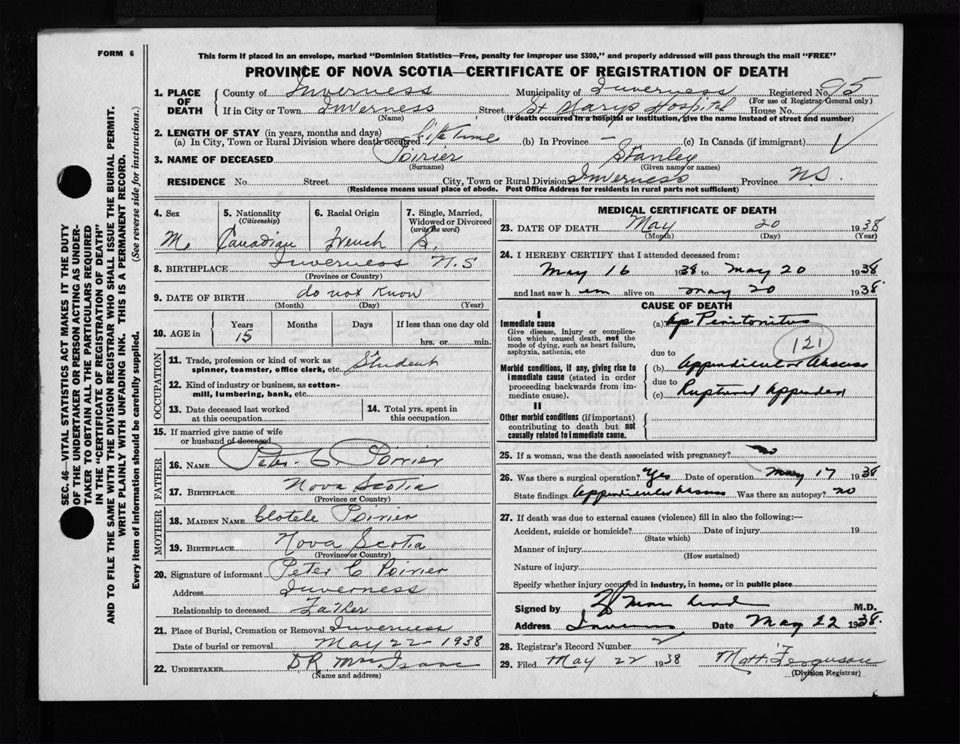 FORM 6
This form if placed in an envelope, marked "Dominion Statistics—Free, penalty for improper use $300," and properly addressed will pass through the mail "FREE"
PROVINCE OF NOVA SCOTIA—CERTIFICATE OF REGISTRATION OF DEATH
1. PLACE OF DEATH County of Inverness Municipality of Inverness Registered No. 95
(For use of Registrar-General only)
If in City or Town Inverness Street St Marys Hospital House No.
(Name) (If death occurred in a hospital or institution, give the name instead of street and number)
2. LENGTH OF STAY (in years, months and days)
(a) In City, Town or Rural Division where death occurred Life Time (b) In Province (c) In Canada (if immigrant)
3. NAME OF DECEASED Poirier Stanley
(Surname) (Given name or names)
RESIDENCE No. Street City, Town or Rural Division Inverness Province N.S.
(Residence means usual place of abode. Post Office Address for residents in rural parts not sufficient)
SEC. 46—VITAL STATISTICS ACT MAKES IT THE DUTY
OF THE UNDERTAKER OR PERSON ACTING AS UNDER-
TAKER TO OBTAIN ALL THE PARTICULARS REQUIRED
IN THE "CERTIFICATE OF REGISTRATION OF DEATH"
AND TO FILE THE SAME WITH THE DIVISION REGISTRAR WHO SHALL ISSUE THE BURIAL PERMIT.
WRITE PLAINLY WITH UNFADING INK. THIS IS A PERMANENT RECORD.
Every item of information should be carefully supplied. (See reverse side for instructions.)
4. Sex 5. Nationality (Citizenship) 6. Racial Origin 7. Single, Married, Widowed or Divorced (write the word)
M. Canadian French S.
8. BIRTHPLACE Inverness N.S
(Province or Country)
9. DATE OF BIRTH do not know
(Month) (Day) (Year)
10. AGE in Years Months Days If less than one day old
15 hrs. or min.
OCCUPATION
11. Trade, profession or kind of work as spinner, teamster, office clerk, etc. Student
12. Kind of industry or business, as cotton-mill, lumbering, bank, etc.
13. Date deceased last worked at this occupation 14. Total yrs. spent in this occupation
15. If married give name of wife or husband of deceased
FATHER
16. NAME Peter C. Poirier
17. BIRTHPLACE Nova Scotia
(Province or Country)
MOTHER
18. MAIDEN NAME Clotele Poirier
19. BIRTHPLACE Nova Scotia
(Province or Country)
20. Signature of informant Peter C Poirier
Address Inverness
Relationship to deceased Father
21. Place of Burial, Cremation or Removal Inverness
Date of burial or removal May 22 1938
22. UNDERTAKER D R MacIsaac
(Name and address)
MEDICAL CERTIFICATE OF DEATH
23. DATE OF DEATH May 20 1938
(Month) (Day) (Year)
24. I HEREBY CERTIFY that I attended deceased from:
May 16 1938 to May 20 1938
and last saw h im alive on May 20 1938
CAUSE OF DEATH
I
Immediate cause (a) Peritonitis
Give disease, injury or complication which caused death, not the mode of dying, such as heart failure, asphyxia, asthenia, etc
121
due to
Morbid conditions, if any, giving rise to immediate cause (stated in order proceeding backwards from immediate cause). (b) Appendicular Abscess
due to
(c) Ruptured Appendix
II
Other morbid conditions (if important) contributing to death but not causally related to immediate cause.
25. If a woman, was the death associated with pregnancy? no
26. Was there a surgical operation? Yes Date of operation May 17 1938
State findings Appendicular Abscess Was there an autopsy? no
27. If death was due to external causes (violence) fill in also the following:—
Accident, suicide or homicide? Date of injury 19
(State which)
Manner of injury
(How sustained)
Nature of injury
Specify whether injury occurred in industry, in home, or in public place
Signed by M.D.
Address Date May 22 1938.
28. Registrar's Record Number 2
29. Filed May 22 1938 Matt. Ferguson
(Division Registrar)